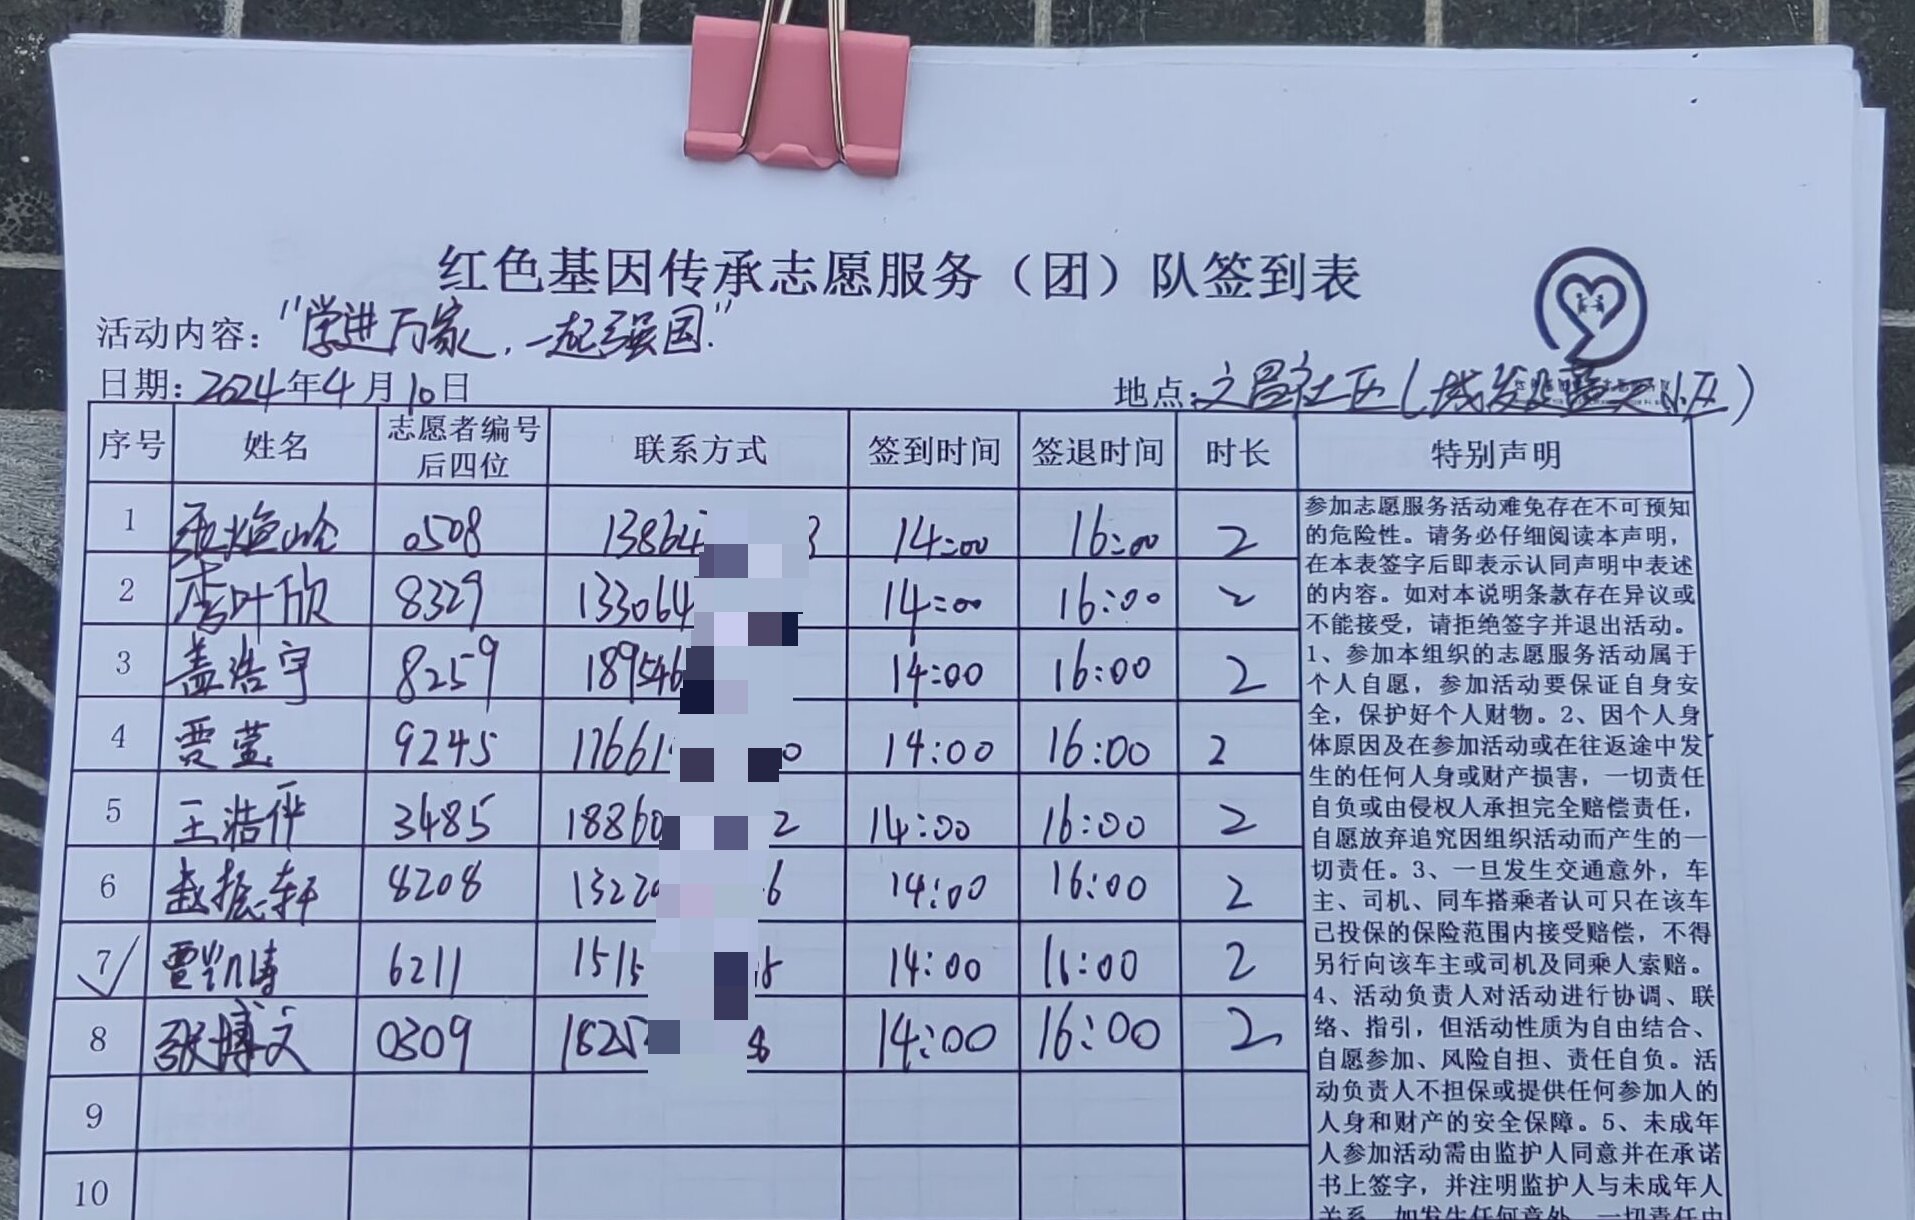 红色基因传承志愿服务（团）队签到表
活动内容："学进万家，一起强国".
日期：2024年4月10日
地点：文昌社区（城发蓝天小区）
序号 姓名 志愿者编号后四位 联系方式 签到时间 签退时间 时长 特别声明
1 0508 13864 3 14:00 16:00 2
2 李叶欣 8329 133064 14:00 16:00 2
3 盖浩宇 8259 189546 14:00 16:00 2
4 贾萱 9245 17661 0 14:00 16:00 2
5 王浩伊 3485 18860 2 14:00 16:00 2
6 赵振轩 8208 1322 6 14:00 16:00 2
7 贾凯涛 6211 1515 5 14:00 16:00 2
8 张博文 0309 1825 8 14:00 16:00 2
9
10
参加志愿服务活动难免存在不可预知
的危险性。请务必仔细阅读本声明，
在本表签字后即表示认同声明中表述
的内容。如对本说明条款存在异议或
不能接受，请拒绝签字并退出活动。
1、参加本组织的志愿服务活动属于
个人自愿，参加活动要保证自身安
全，保护好个人财物。2、因个人身
体原因及在参加活动或在往返途中发
生的任何人身或财产损害，一切责任
自负或由侵权人承担完全赔偿责任，
自愿放弃追究因组织活动而产生的一
切责任。3、一旦发生交通意外，车
主、司机、同车搭乘者认可只在该车
已投保的保险范围内接受赔偿，不得
另行向该车主或司机及同乘人索赔。
4、活动负责人对活动进行协调、联
络、指引，但活动性质为自由结合、
自愿参加、风险自担、责任自负。活
动负责人不担保或提供任何参加人的
人身和财产的安全保障。5、未成年
人参加活动需由监护人同意并在承诺
书上签字，并注明监护人与未成年人
关系，如发生任何意外，一切责任由